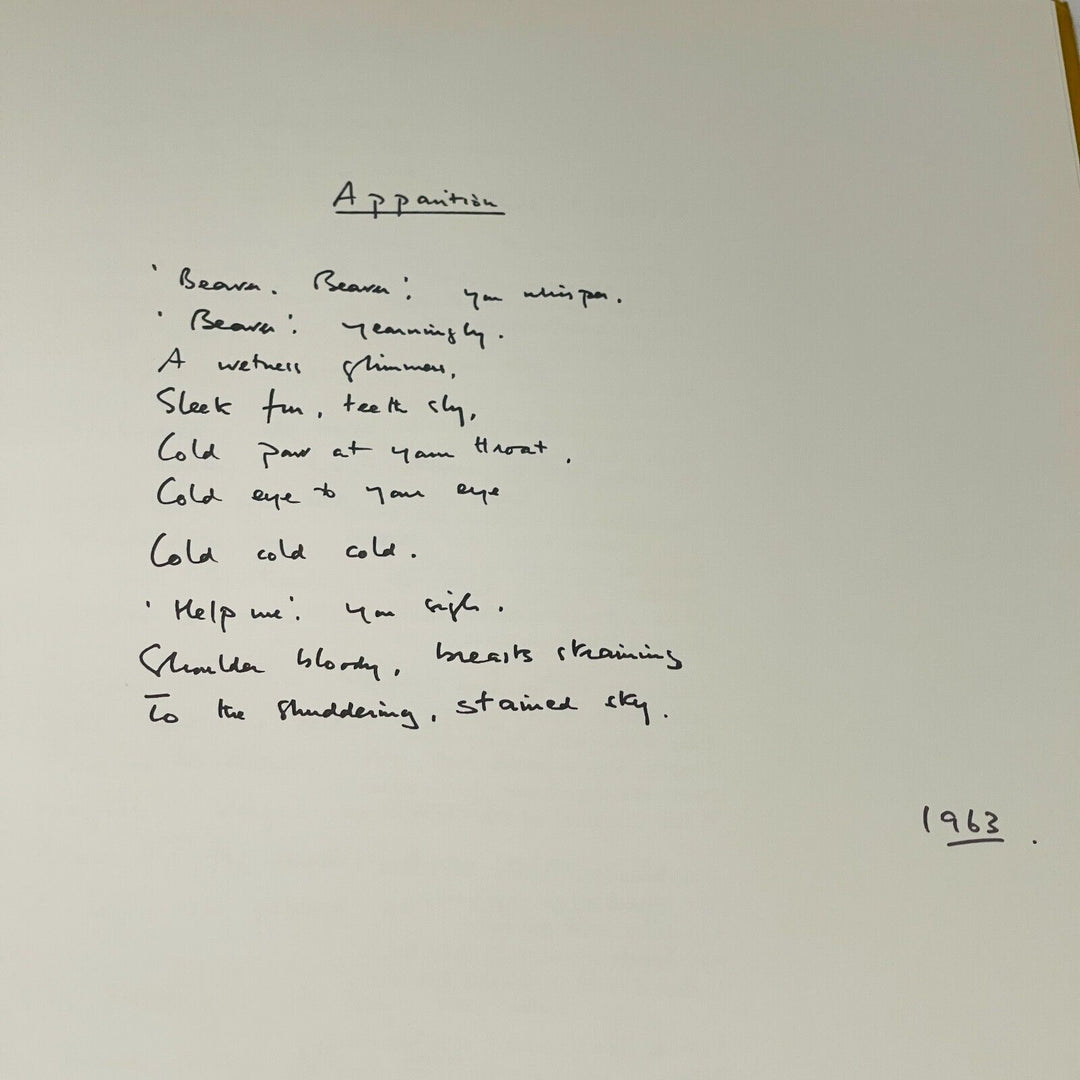 Apparition
'Beaver. Beaver'. you whisper.
'Beaver'. yearningly.
A wetness glimmers,
Sleek fur, teeth sly,
Cold paw at your throat,
Cold eye to your eye
Cold cold cold.
'Help me'. you sigh.
Shoulder bloody, breasts straining
To the shuddering, stained sky.
1963.